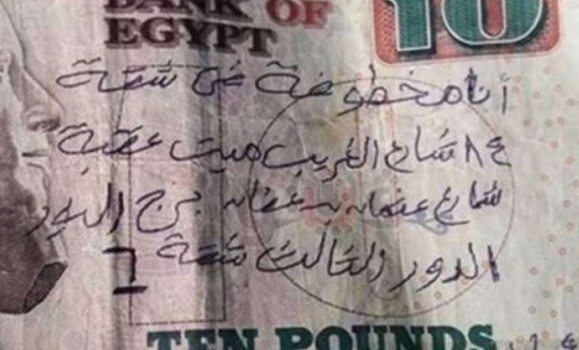 BANK OF
EGYPT
10
أنا مخطوفة في شقة
٤٨ شارع الغريب ميت عقبة
شارع عثمان بن عفان برج الدور
الدور الثالث شقة ٦
TEN POUNDS